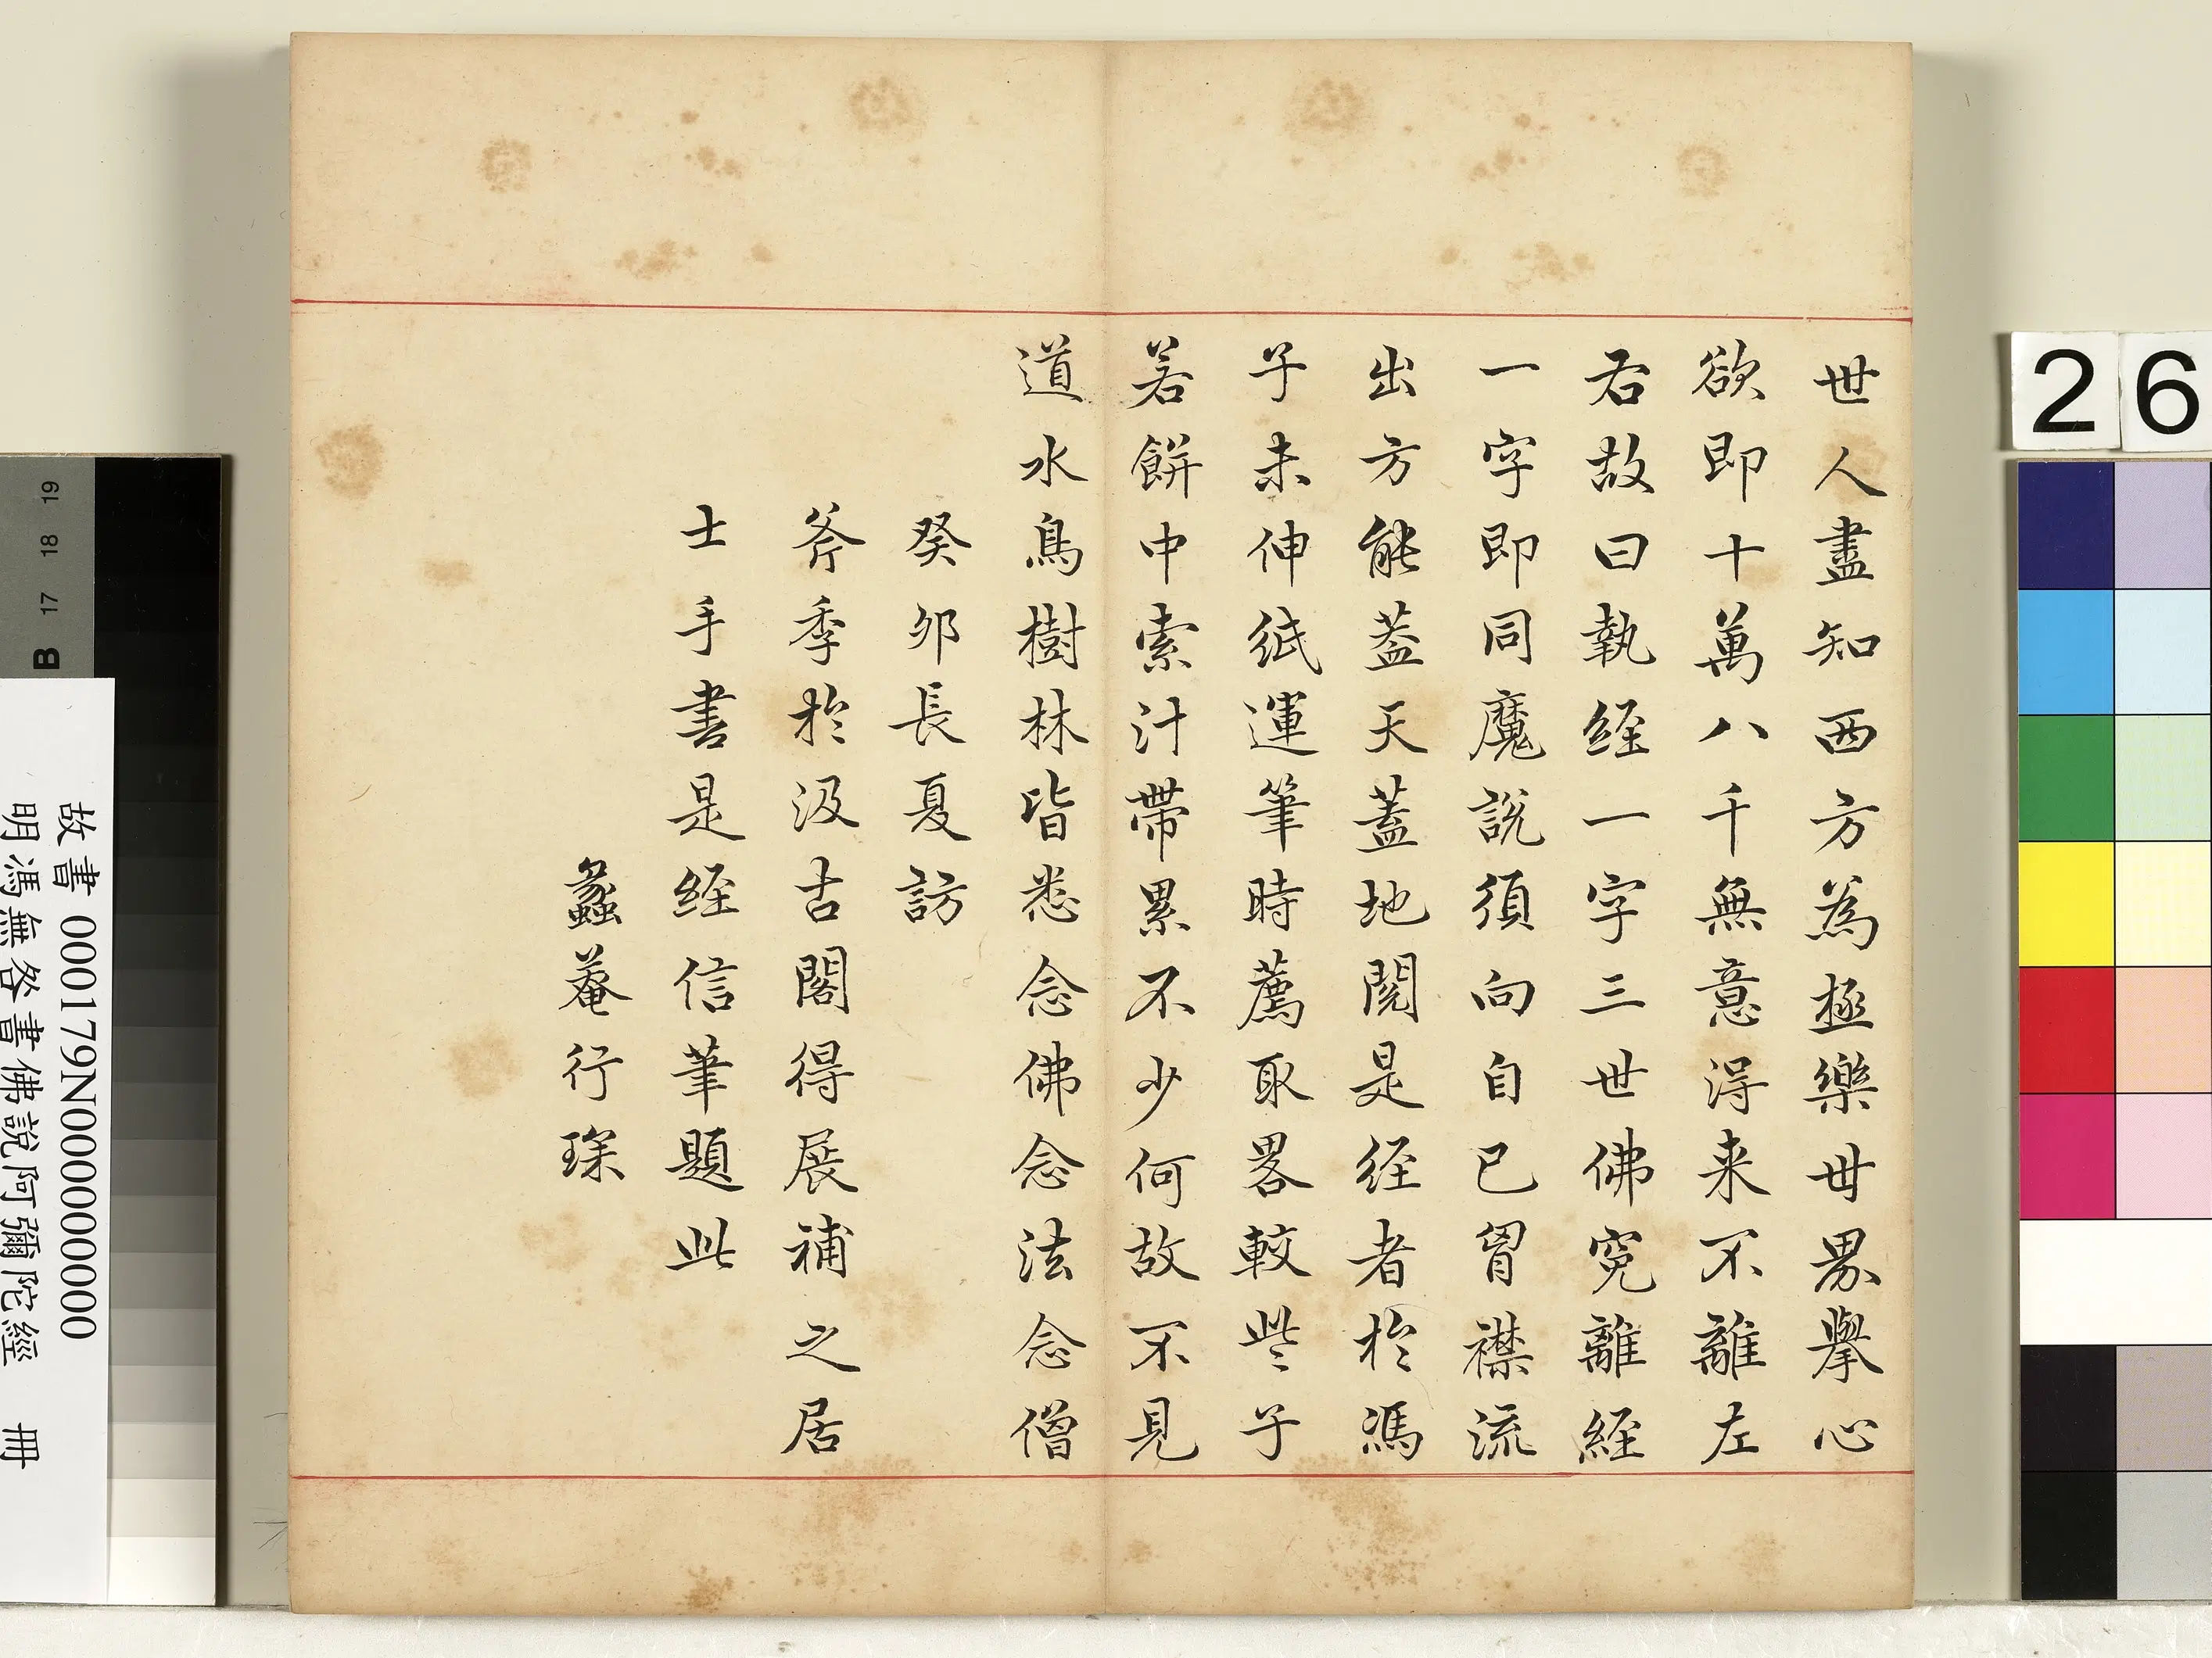 世人盡知西方為極樂世界舉心
欲即十萬八千無意得来不離左
右故曰執経一字三世佛寃離経
一字即同魔說須向自已胷襟流
出方能葢天蓋地閱是経者於馮
子未伸紙運筆時薦取畧較些子
若餅中索汁帶累不少何故不見
道水鳥樹林皆悉念佛念法念僧
癸夘長夏訪
斧季於汲古閣得展補之居
士手書是経信筆題此
蠡菴行琛
26
19
18
17
B
故書 000179N000000000
明馮無咎書佛說阿彌陀經 冊